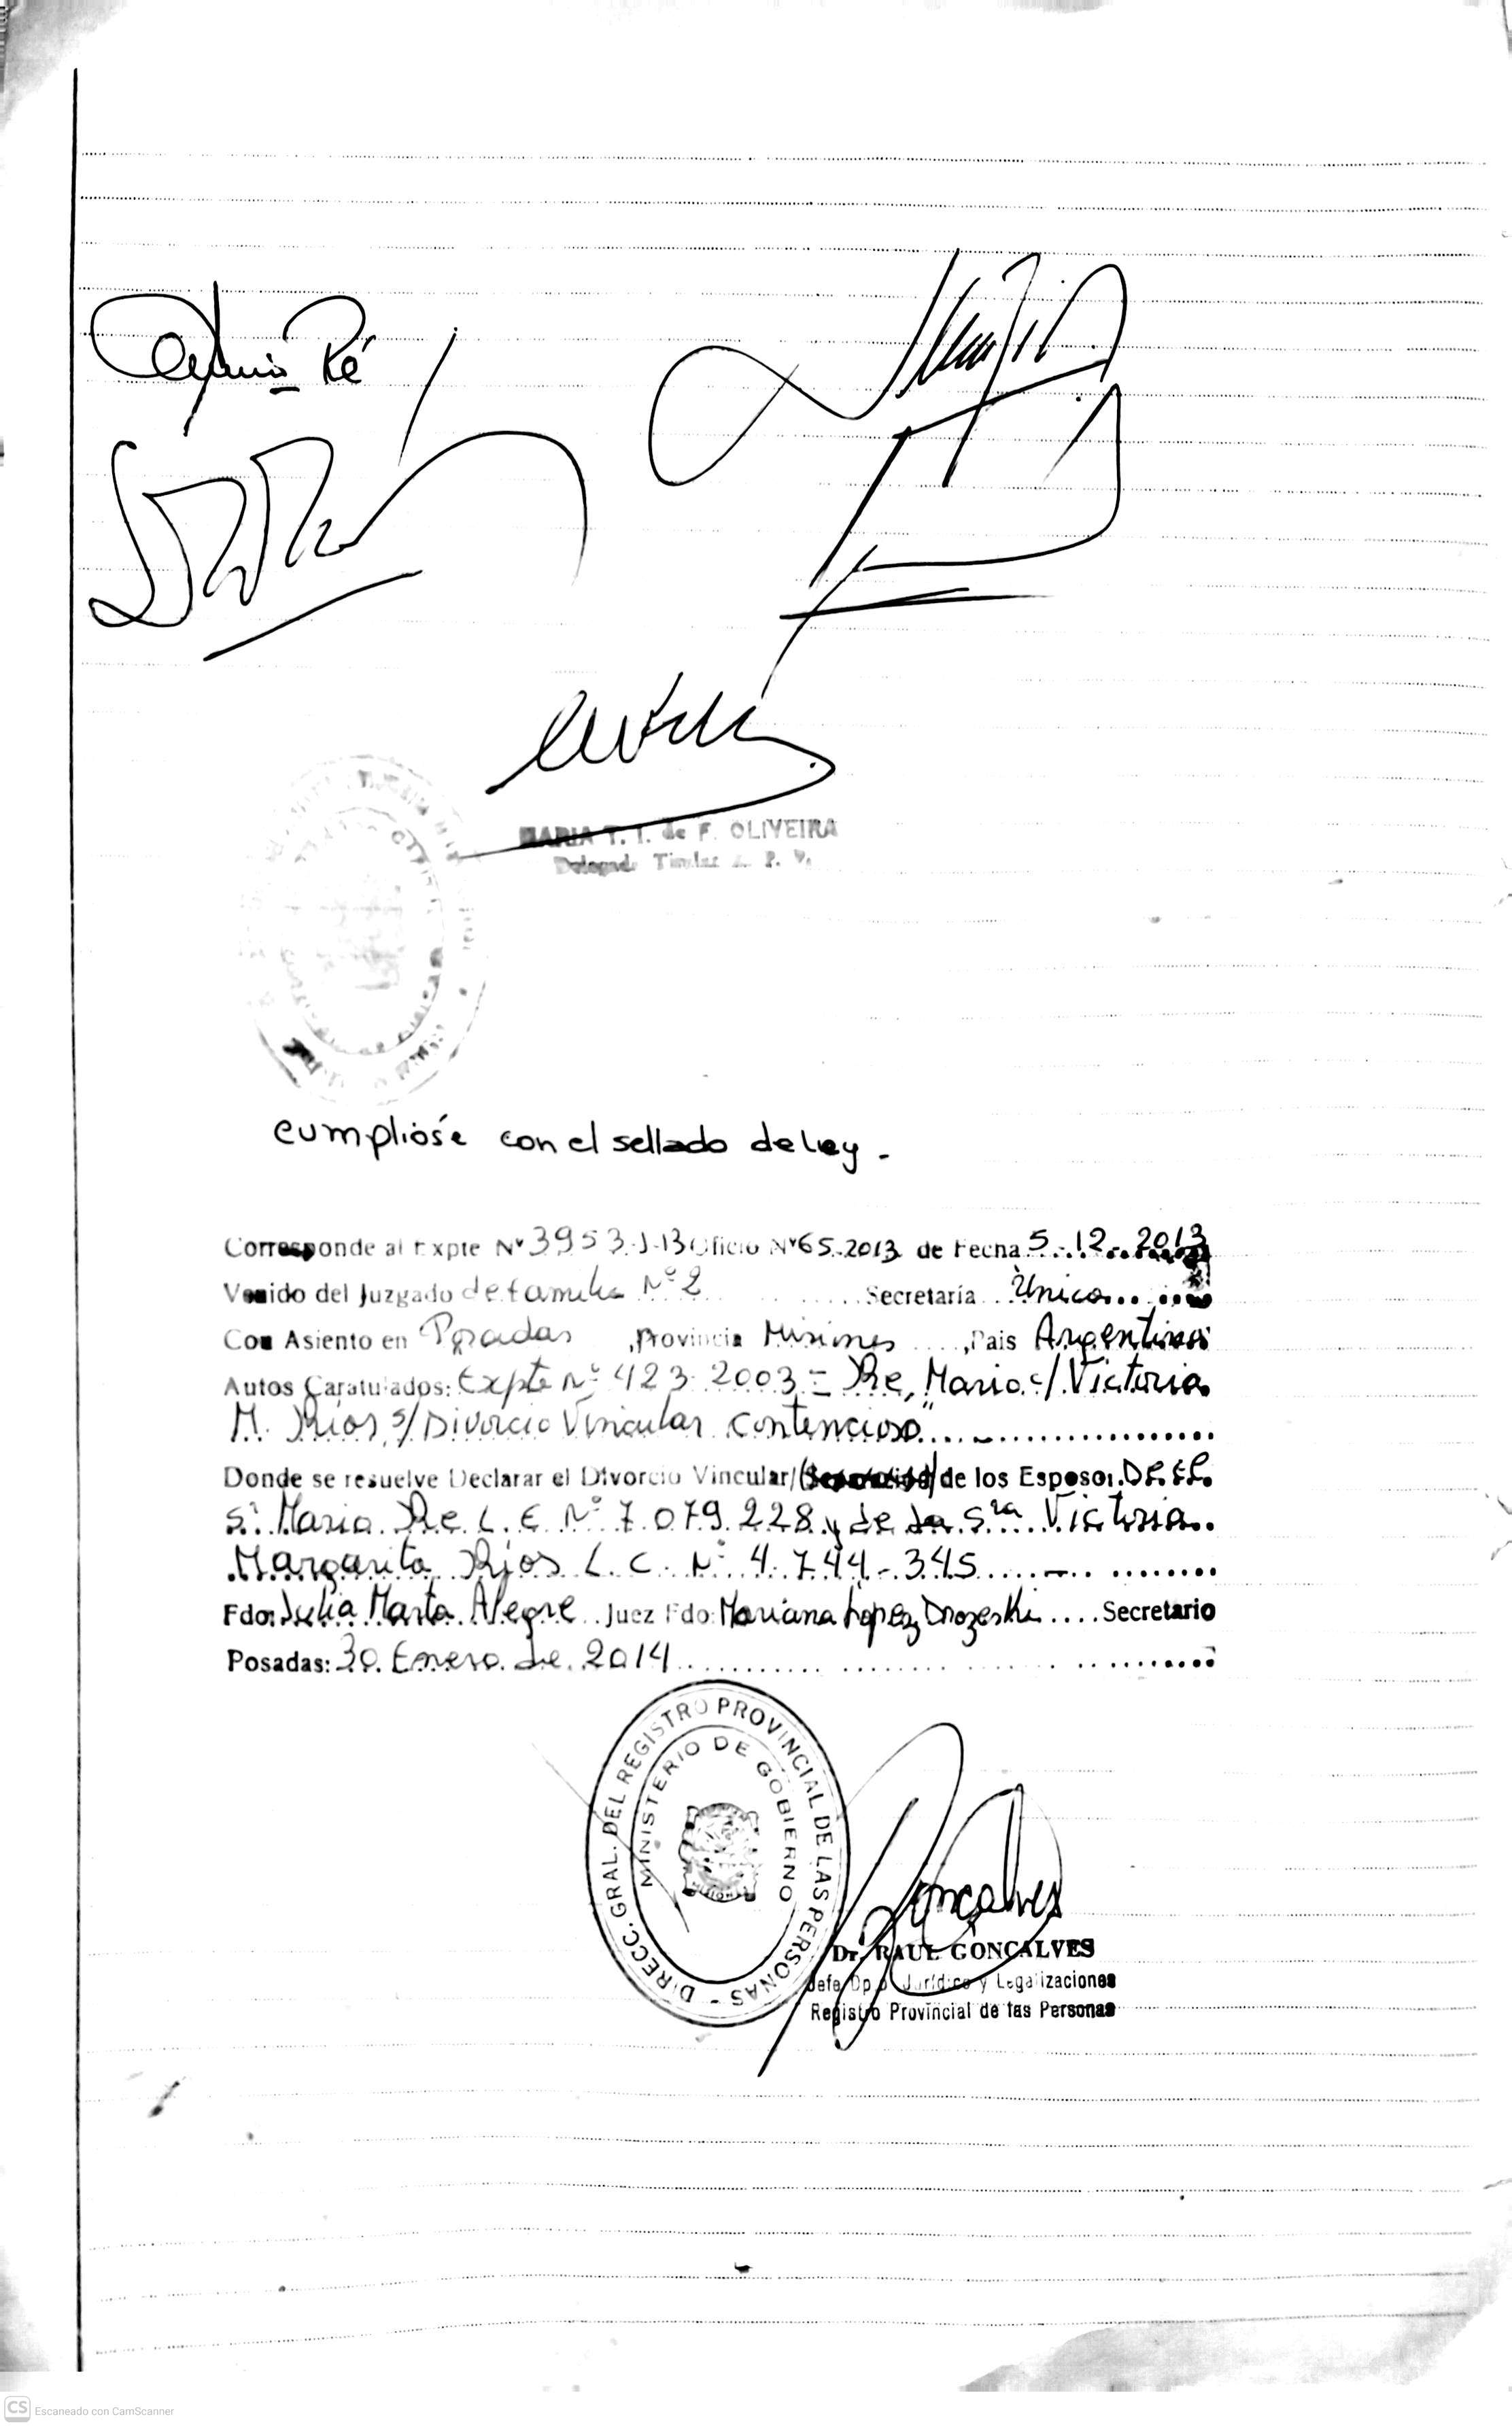 Ré
MARIA T. I. de F. OLIVEIRA
Titular
cumplióse con el sellado de ley -
Corresponde al Expte Nº 3953-J-13 Oficio Nº 65-2013 de Fecha 5-12-2013
Venido del Juzgado de familia Nº 2 Secretaría Única
Con Asiento en Posadas, Provincia Misiones, Pais Argentina
Autos Caratulados: Expte Nº 423-2003 = Re, Mario c/ Victoria
M. Rios s/ Divorcio Vincular Contencioso"
Donde se resuelve Declarar el Divorcio Vincular/ de los Esposos
Sr Mario Re L.E Nº 7.079.228 y de la Sra Victoria
Margarita Rios L.C. Nº 4.744-345
Fdo: Julia Marta Alegre Juez Fdo: Mariana López Secretario
Posadas: 30 Enero de 2014
DIRECC. GRAL. DEL REGISTRO PROVINCIAL DE LAS PERSONAS -
MINISTERIO DE GOBIERNO
Goncalves
Dr. RAUL GONCALVES
Jefe Dpto Jurídico y Legalizaciones
Registro Provincial de las Personas
CS Escaneado con CamScanner